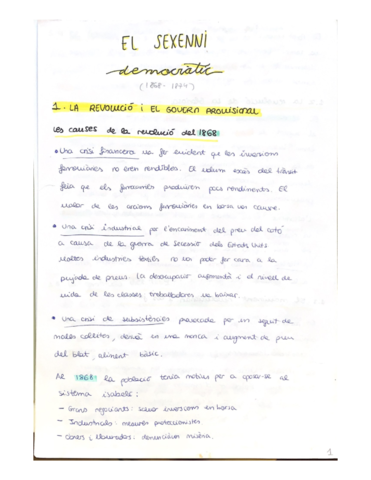 EL SEXENNI
democràtic
(1868 - 1874)
1. LA REVOLUCIÓ I EL GOVERN PROVISIONAL
Les causes de la revolució del 1868
• Una crisi financera va fer evident que les inversions
ferroviàries no eren rendibles. El volum escàs del trànsit
feia que els ferrocarrils produïren pocs rendiments. El
valor de les accions ferroviàries en borsa van caure.
• Una crisi industrial per l'encariment del preu del cotó
a causa de la guerra de Secessió dels Estats Units
Moltes indústries tèxtils no van poder fer cara a la
pujada de preus (la desocupació augmentà i el nivell de
vida de les classes treballadores va baixar.
• Una crisi de subsistències provocada per un seguit de
males collites, derivà en una manca i augment de preu
del blat, aliment bàsic.
Al 1868 la població tenia motius per a oposar-se al
sistema isabelí:
- Grans negociants: salvar inversions en borsa
- Industrials: mesures proteccionistes
- Obrers i llauradors: denunciaven misèria.
1